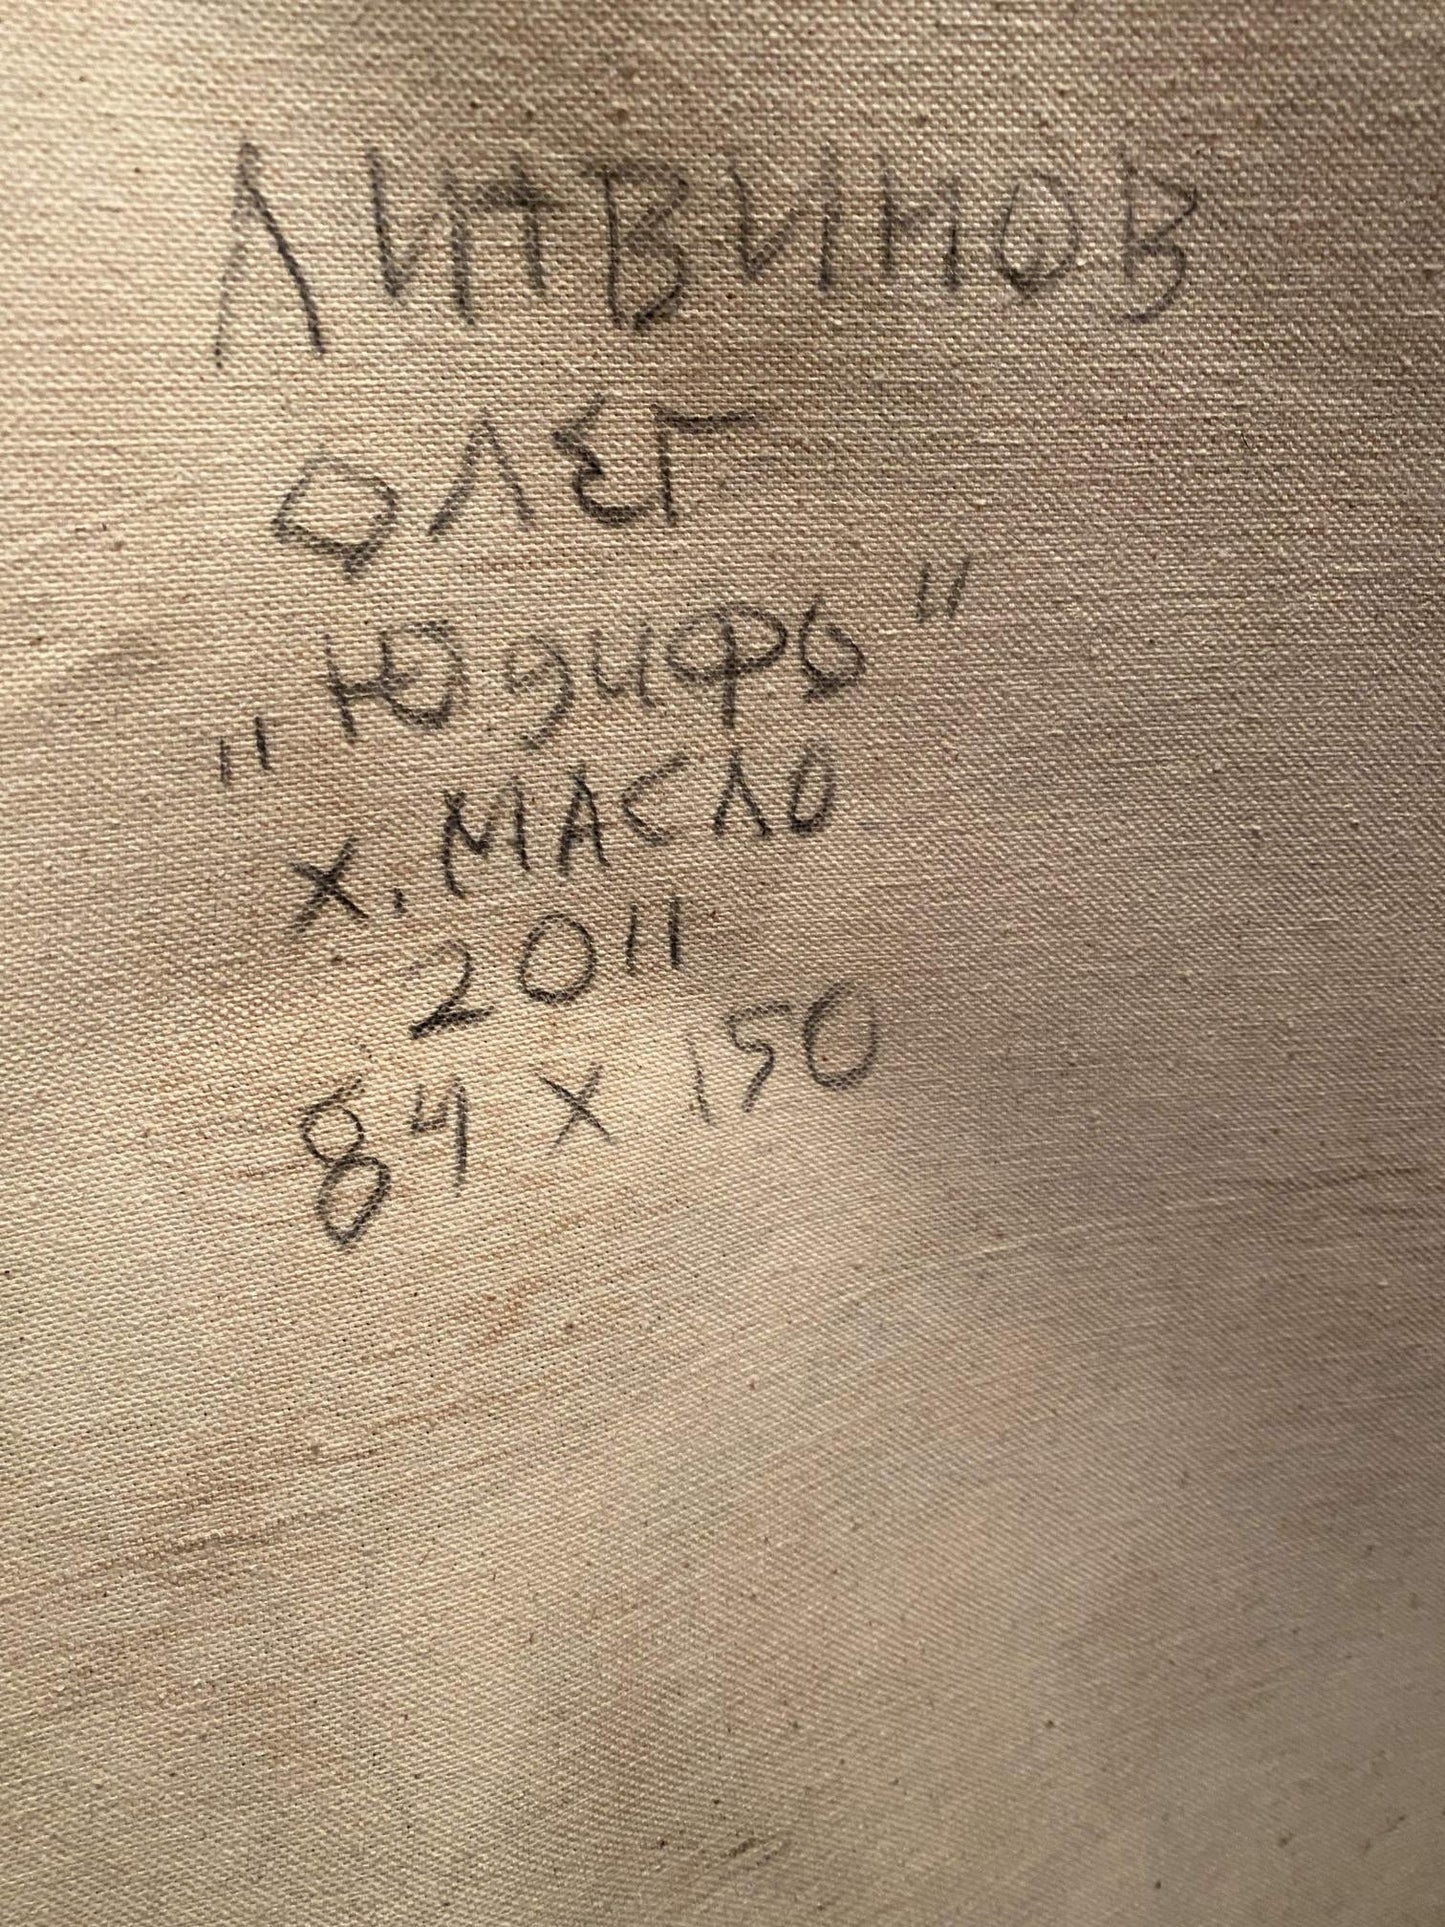 ЛИТВИНОВ
ОЛЕГ
"Юдифь"
х. МАСЛО
2011
84 х 150